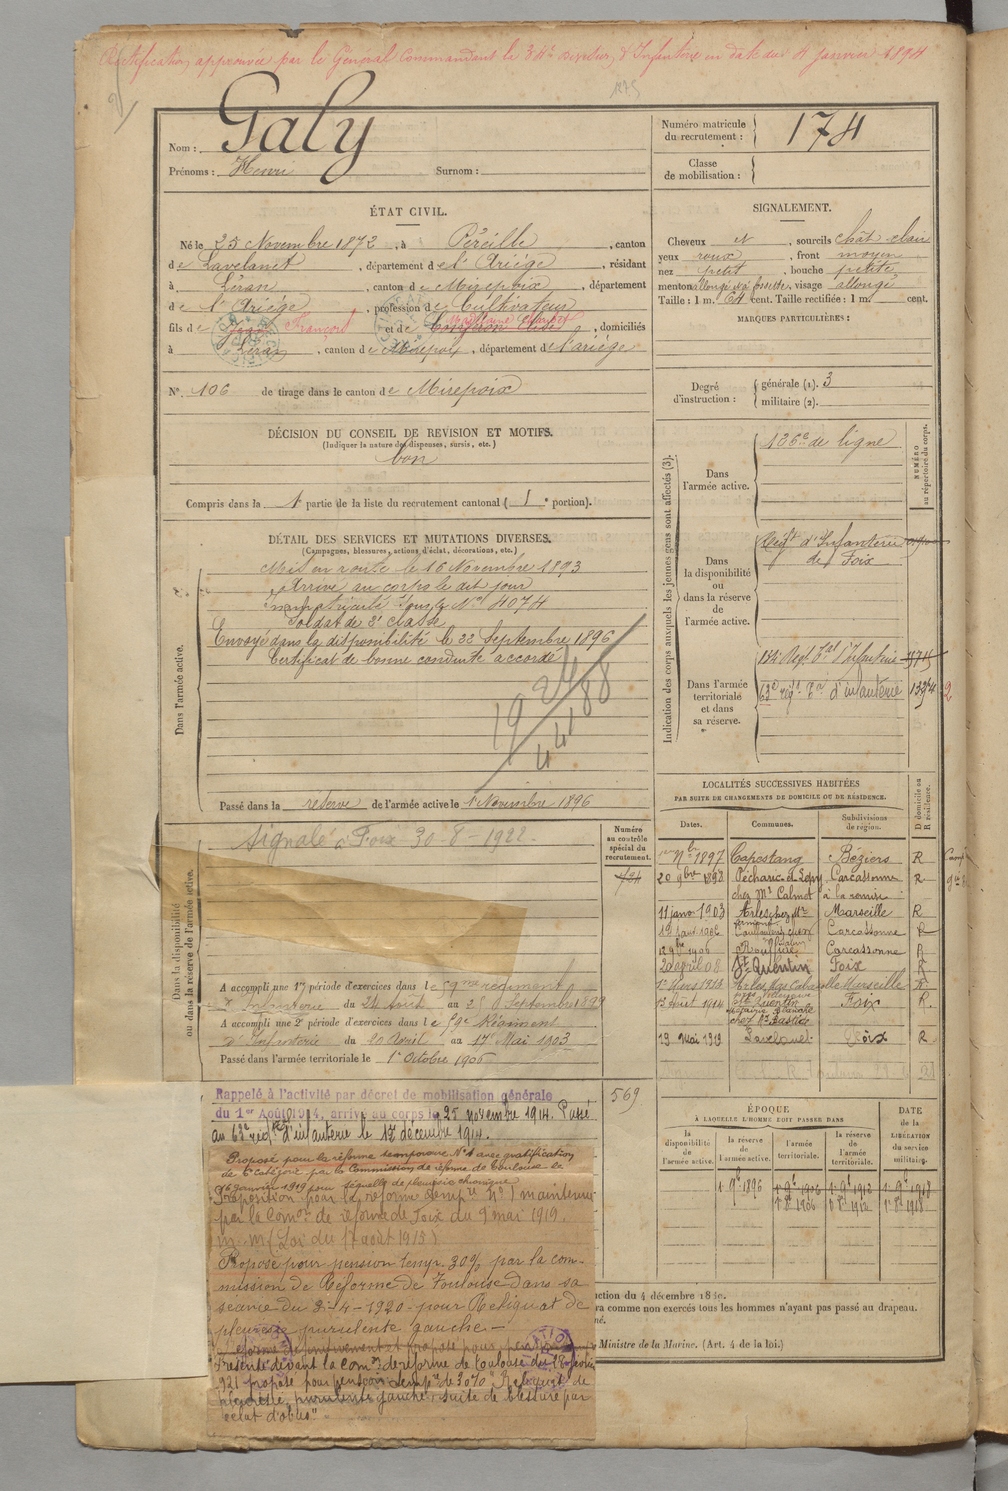 Rectification approuvée par le Général Commandant la 34e Division d'Infanterie en date du 4 janvier 1894
Nom : Galy
Prénoms : Henri Surnom :
Numéro matricule du recrutement : 174
Classe de mobilisation :
ÉTAT CIVIL.
Né le 25 Novembre 1872, à Péreille, canton
de Lavelanet, département de l'Ariége, résidant
à Léran, canton de Mirepoix, département
de l'Ariége, profession de Cultivateur
fils de Jean François et de, domiciliés
à Léran, canton de Mirepoix, département de l'ariége
No. 106 de tirage dans le canton de Mirepoix
DÉCISION DU CONSEIL DE REVISION ET MOTIFS.
(Indiquer la nature des dispenses, sursis, etc.)
bon
Compris dans la 1e partie de la liste du recrutement cantonal ( 1e portion).
DÉTAIL DES SERVICES ET MUTATIONS DIVERSES.
(Campagnes, blessures, actions d'éclat, décorations, etc.)
Dans l'armée active.
Mis en route le 16 Novembre 1893
Arrivé au corps le dit jour
Immatriculé sous le No 4074
Soldat de 2e classe
Envoyé dans la disponibilité le 22 Septembre 1896
Certificat de bonne conduite accordé
Passé dans la réserve de l'armée active le 1 Novembre 1896
SIGNALEMENT.
Cheveux N, sourcils chât clair
yeux roux, front moyen
nez petit, bouche petite
menton allongé et à fossette, visage allongé
Taille : 1 m. 64 cent. Taille rectifiée : 1 m. cent.
MARQUES PARTICULIÈRES :
Degré d'instruction : générale (1). 3
militaire (2).
Indication des corps auxquels les jeunes gens sont affectés (3).
NUMÉRO au répertoire du corps.
Dans l'armée active.
126e de ligne
Dans la disponibilité ou dans la réserve de l'armée active.
Régt d'Infanterie
de Foix
Dans l'armée territoriale et dans sa réserve.
134 Régt Tal d'Infanterie
63e régt Tal d'infanterie
LOCALITÉS SUCCESSIVES HABITÉES
PAR SUITE DE CHANGEMENTS DE DOMICILE OU DE RÉSIDENCE.
Dates. Communes. Subdivisions de région. D domicile ou R résidence.
1897 Capestang Béziers R
20 9bre 1898 Carcassonne R
chez Mr Calmet
11 janv 1903 Arles Marseille R
Carcassonne R
1906 Rouffiac Carcassonne R
20 avril 08 St Quentin Foix R
1er Mars 1914 Arles Marseille R
1er Août 1914 St Quentin Foix R
19 Mai 1919 Lavelanet Foix R
Dans la disponibilité ou dans la réserve de l'armée active.
Signalé à Foix 30-8-1922
Numéro au contrôle spécial du recrutement.
A accompli une 1re période d'exercices dans le 59me régiment
d'Infanterie du 29 Août au 25 Septembre 1899
A accompli une 2e période d'exercices dans le 59e Régiment
d'Infanterie du 20 Avril au 17 Mai 1903
Passé dans l'armée territoriale le 1er Octobre 1906
569
Rappelé à l'activité par décret de mobilisation générale
du 1er Août 1914, arrivé au corps le 25 novembre 1914. Passé
au 63e régt d'infanterie le 17 décembre 1914.
Proposé pour la réforme temporaire No 1 avec gratification
de 6e catégorie par la Commission de réforme de Toulouse le
16 janvier 1919 pour séquelle de pleurésie chronique
Proposition pour la réforme tempre No 1 maintenue
par la Comon de réforme de Foix du 9 mai 1919.
(Loi du 17 août 1915)
Proposé pour pension temp. 30% par la com-
mission de Réforme de Toulouse dans sa
séance du 3-4-1920 pour Reliquat de
pleurésie purulente gauche -
Présenté devant la Comon de réforme de Toulouse du
1921 proposé pour pension tempre de 30% Reliquat de
pleurésie purulente gauche suite de blessure par
éclat d'obus"
ÉPOQUE
A LAQUELLE L'HOMME DOIT PASSER DANS
DATE de la LIBÉRATION du service militaire.
la disponibilité de l'armée active. la réserve de l'armée active. l'armée territoriale. la réserve de l'armée territoriale.
1 9bre 1896 1 9bre 1906 1 9bre 1912 1 9bre 1918
1 8bre 1906 1 8bre 1912 1 8bre 1918
ction du 4 décembre 18
ra comme non exercés tous les hommes n'ayant pas passé au drapeau.
né.
Ministre de la Marine. (Art. 4 de la loi.)